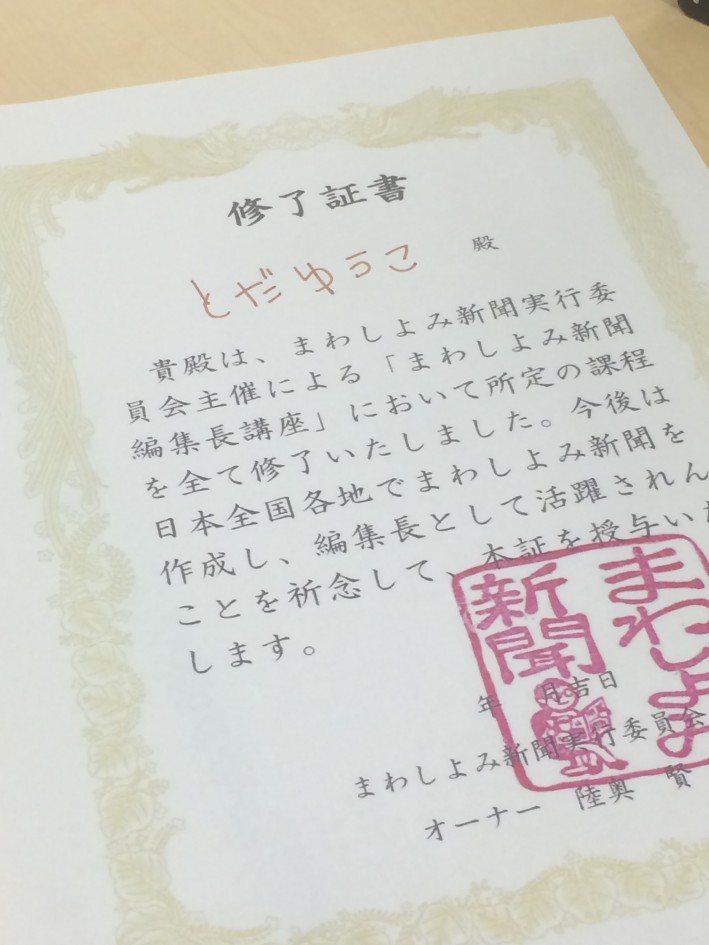 修了証書
とだゆうこ 殿
貴殿は、まわしよみ新聞実行委
員会主催による「まわしよみ新聞
編集長講座」において所定の課程
を全て修了いたしました。今後は
日本全国各地でまわしよみ新聞を
作成し、編集長として活躍されん
ことを祈念して、本証を授与いた
します。
年 月吉日
まわしよみ新聞実行委員会
オーナー 陸奥 賢
まわしよみ
新聞